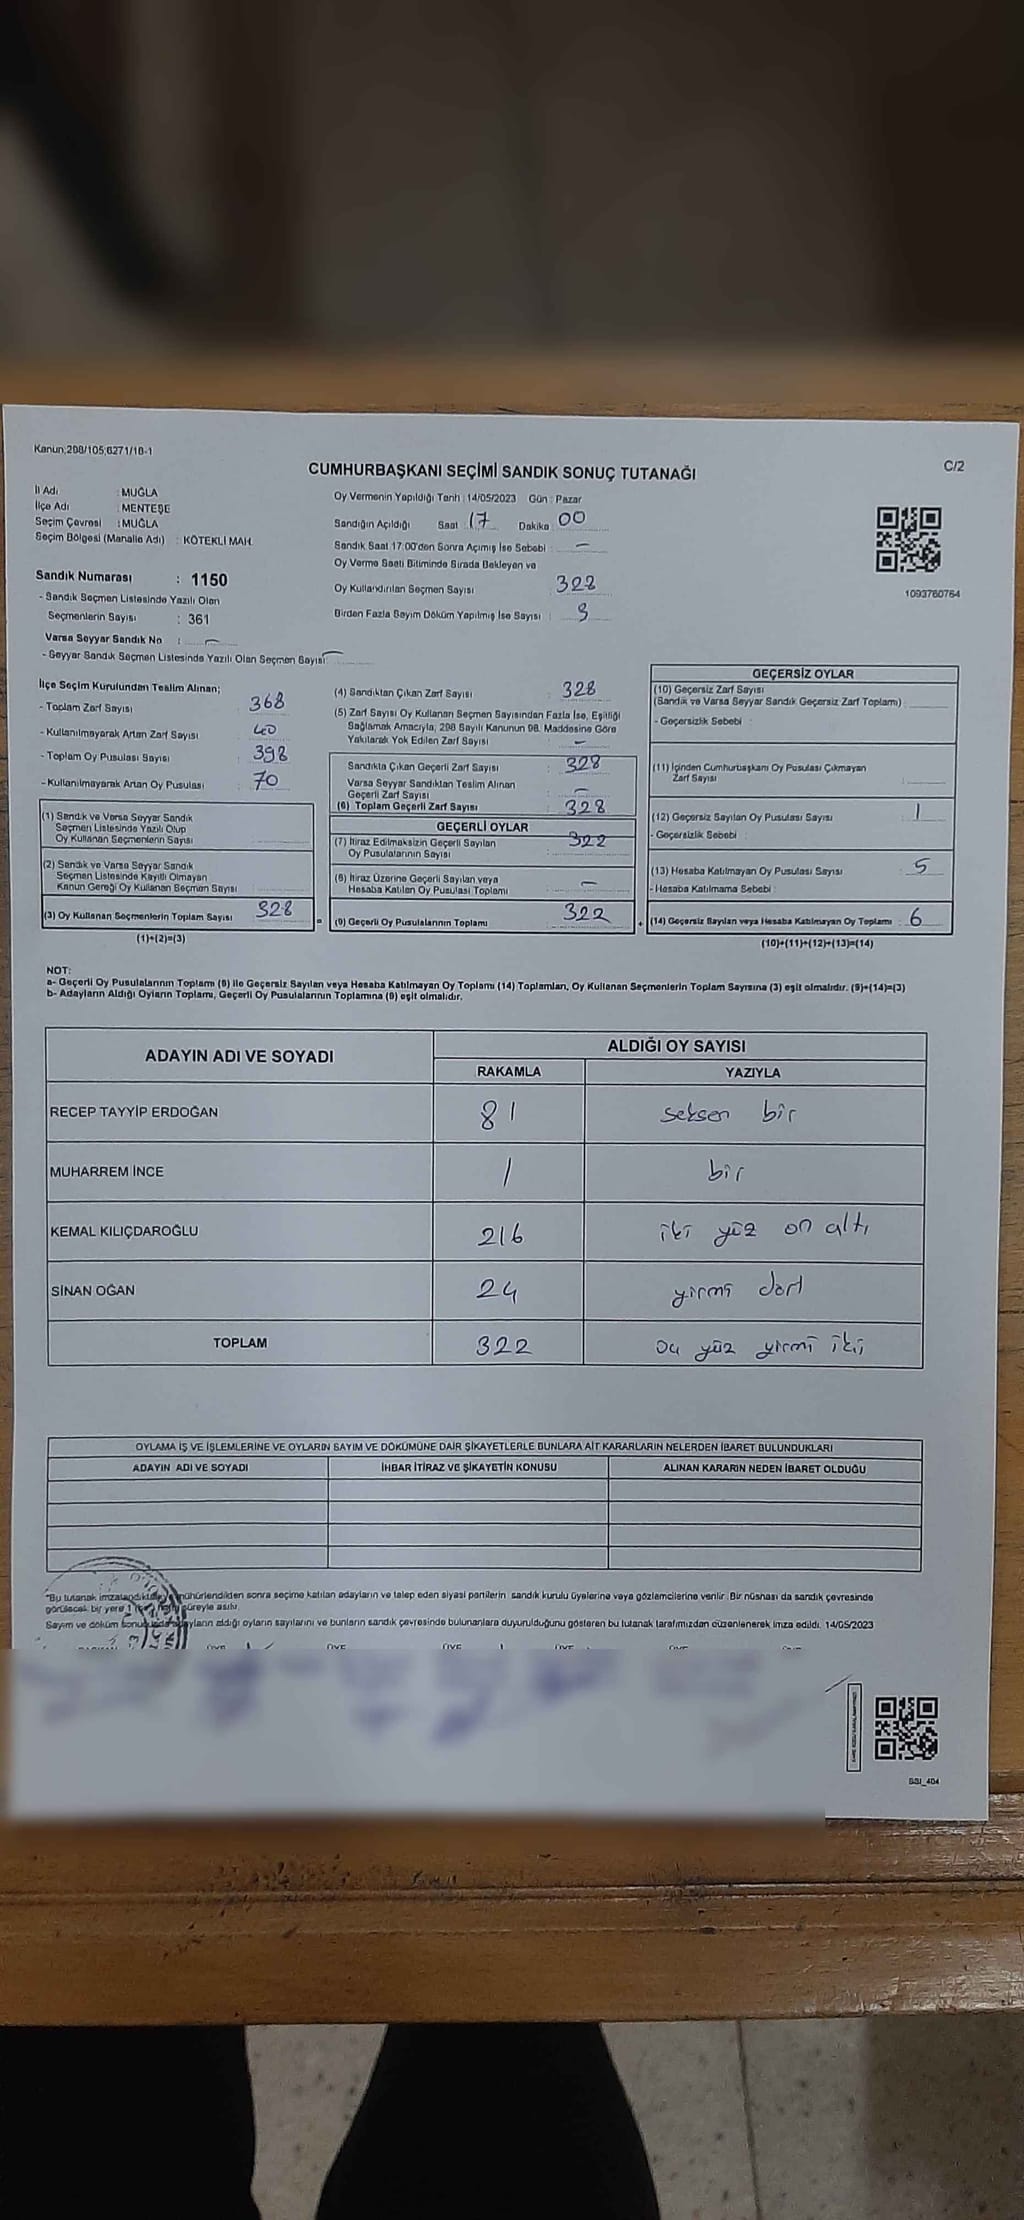 Kanun;298/105;6271/18-1
C/2
CUMHURBAŞKANI SEÇİMİ SANDIK SONUÇ TUTANAĞI
İl Adı : MUĞLA
İlçe Adı : MENTEŞE
Seçim Çevresi : MUĞLA
Seçim Bölgesi (Mahalle Adı) : KÖTEKLİ MAH.
Sandık Numarası : 1150
- Sandık Seçmen Listesinde Yazılı Olan
Seçmenlerin Sayısı : 361
Varsa Seyyar Sandık No : -
- Seyyar Sandık Seçmen Listesinde Yazılı Olan Seçmen Sayısı -
Oy Vermenin Yapıldığı Tarih : 14/05/2023 Gün : Pazar
Sandığın Açıldığı Saat 17 Dakika 00
Sandık Saat 17:00'den Sonra Açımış İse Sebebi : -
Oy Verme Saati Bitiminde Sırada Bekleyen ve
Oy Kullandırılan Seçmen Sayısı 328
Birden Fazla Sayım Döküm Yapılmış İse Sayısı :
1093760764
İlçe Seçim Kurulundan Teslim Alınan;
- Toplam Zarf Sayısı : 368
- Kullanılmayarak Artan Zarf Sayısı : 40
- Toplam Oy Pusulası Sayısı : 398
- Kullanılmayarak Artan Oy Pusulası : 70
(1) Sandık ve Varsa Seyyar Sandık
Seçmen Listesinde Yazılı Olup
Oy Kullanan Seçmenlerin Sayısı
(2) Sandık ve Varsa Seyyar Sandık
Seçmen Listesinde Kayıtlı Olmayan
Kanun Gereği Oy Kullanan Seçmen Sayısı
(3) Oy Kullanan Seçmenlerin Toplam Sayısı 328
(1)+(2)=(3)
(4) Sandıktan Çıkan Zarf Sayısı : 328
(5) Zarf Sayısı Oy Kullanan Seçmen Sayısından Fazla İse, Eşitliği
Sağlamak Amacıyla, 298 Sayılı Kanunun 98. Maddesine Göre
Yakılarak Yok Edilen Zarf Sayısı : -
Sandıkta Çıkan Geçerli Zarf Sayısı : 328
Varsa Seyyar Sandıktan Teslim Alınan
Geçerli Zarf Sayısı : -
(6) Toplam Geçerli Zarf Sayısı : 328
GEÇERLİ OYLAR
(7) İtiraz Edilmeksizin Geçerli Sayılan
Oy Pusulalarının Sayısı : 322
(8) İtiraz Üzerine Geçerli Sayılan veya
Hesaba Katılan Oy Pusulası Toplamı : -
(9) Geçerli Oy Pusulalarının Toplamı : 322
GEÇERSİZ OYLAR
(10) Geçersiz Zarf Sayısı
(Sandık ve Varsa Seyyar Sandık Geçersiz Zarf Toplamı) :
- Geçersizlik Sebebi :
(11) İçinden Cumhurbaşkanı Oy Pusulası Çıkmayan
Zarf Sayısı :
(12) Geçersiz Sayılan Oy Pusulası Sayısı : 1
- Geçersizlik Sebebi :
(13) Hesaba Katılmayan Oy Pusulası Sayısı : 5
- Hesaba Katılmama Sebebi :
(14) Geçersiz Sayılan veya Hesaba Katılmayan Oy Toplamı : 6
(10)+(11)+(12)+(13)=(14)
NOT:
a- Geçerli Oy Pusulalarının Toplamı (9) ile Geçersiz Sayılan veya Hesaba Katılmayan Oy Toplamı (14) Toplamları, Oy Kullanan Seçmenlerin Toplam Sayısına (3) eşit olmalıdır. (9)+(14)=(3)
b- Adayların Aldığı Oyların Toplamı, Geçerli Oy Pusulalarının Toplamına (9) eşit olmalıdır.
ADAYIN ADI VE SOYADI
ALDIĞI OY SAYISI
RAKAMLA YAZIYLA
RECEP TAYYİP ERDOĞAN 81 seksen bir
MUHARREM İNCE 1 bir
KEMAL KILIÇDAROĞLU 216 iki yüz on altı
SİNAN OĞAN 24 yirmi dört
TOPLAM 322 üç yüz yirmi iki
OYLAMA İŞ VE İŞLEMLERİNE VE OYLARIN SAYIM VE DÖKÜMÜNE DAİR ŞİKAYETLERLE BUNLARA AİT KARARLARIN NELERDEN İBARET BULUNDUKLARI
ADAYIN ADI VE SOYADI İHBAR İTİRAZ VE ŞİKAYETİN KONUSU ALINAN KARARIN NEDEN İBARET OLDUĞU
"Bu tutanak mühürlendikten sonra seçime katılan adayların ve talep eden siyasi partilerin sandık kurulu üyelerine veya gözlemcilerine verilir. Bir nüshası da sandık çevresinde
görülecek bir yere süreyle asılır.
Sayım ve döküm aldığı oyların sayılarını ve bunların sandık çevresinde bulunanlara duyurulduğunu gösteren bu tutanak tarafımızdan düzenlenerek imza edildi. 14/05/2023
ÜYE ÜYE ÜYE ÜYE ÜYE
SSI_404